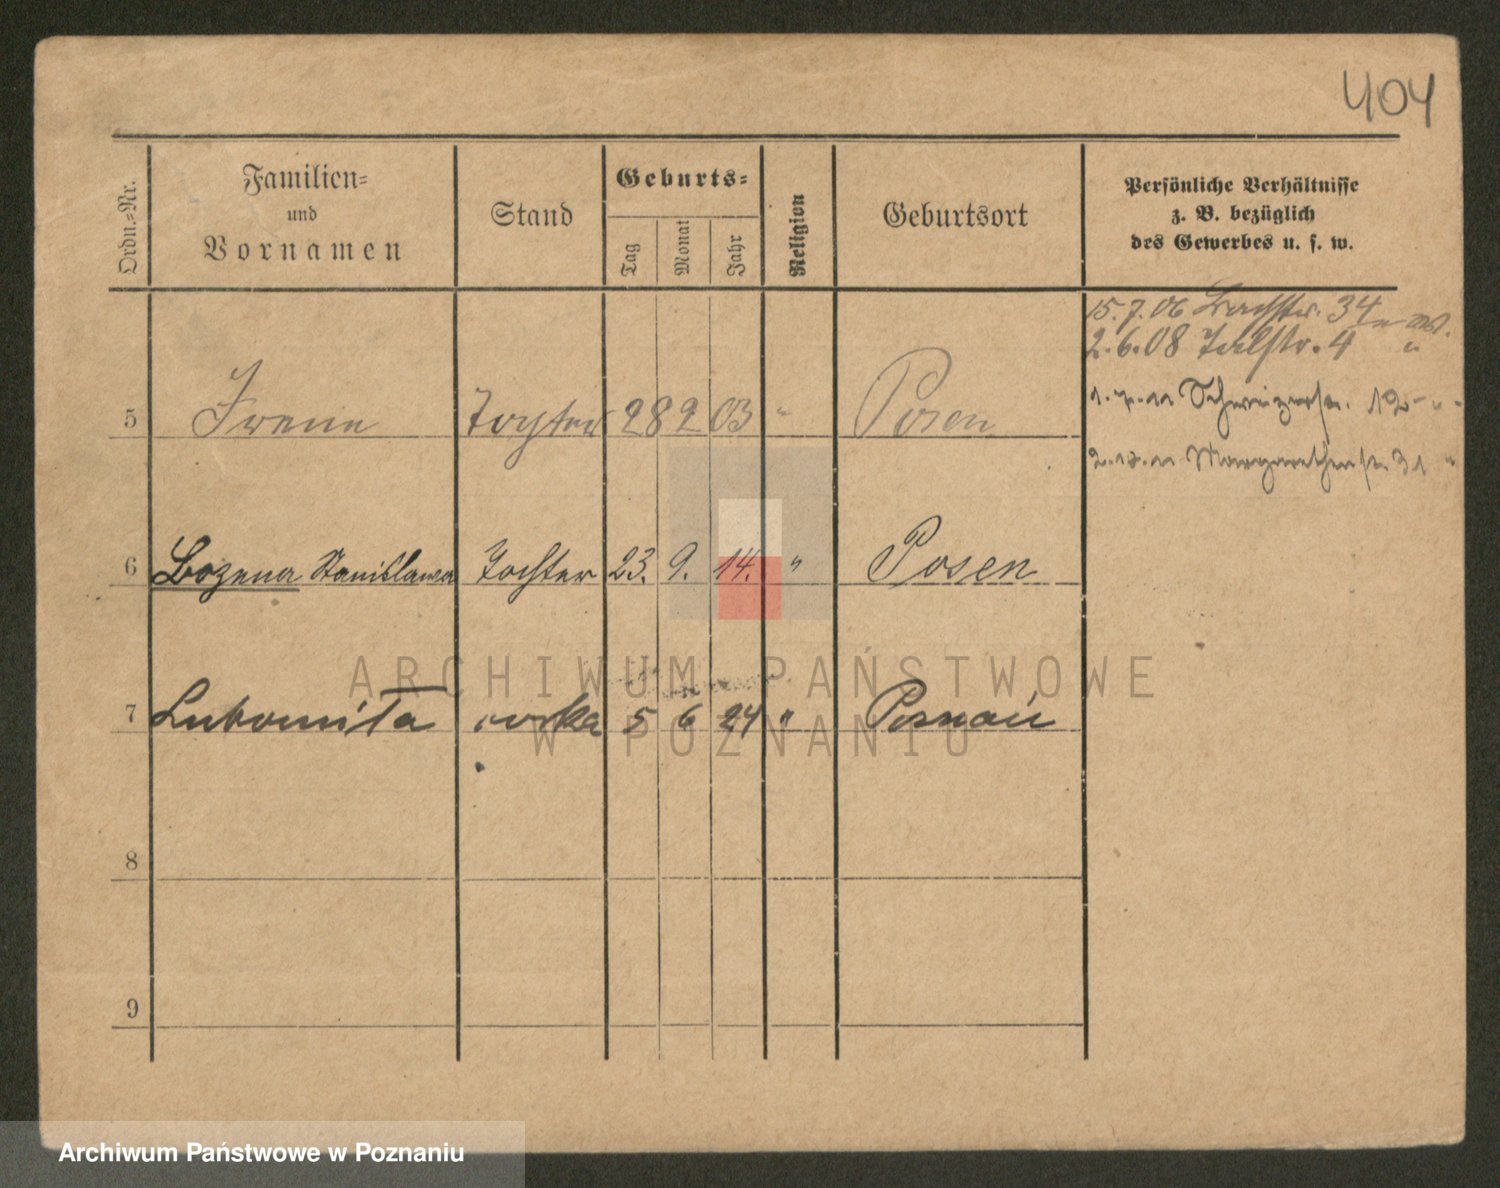 404
Ordn.-Nr.
Familien-
und
Vornamen
Stand
Geburts-
Tag
Monat
Jahr
Religion
Geburtsort
Persönliche Verhältnisse
z. B. bezüglich
des Gewerbes u. s. w.
15.7.06 Bachstr. 34
2.6.08 Talstr. 4 "
5 Irene Tochter 28 2 03 " Posen
1.7.11 Schweizerstr. 12 "
2.12.11 Margarethenstr. 31 "
6 Bozena Stanislawa Tochter 23. 9. 14. " Posen
7 Lubomiła córka 5 6 24 " Poznań
8
9
ARCHIWUM PAŃSTWOWE
W POZNANIU
Archiwum Państwowe w Poznaniu